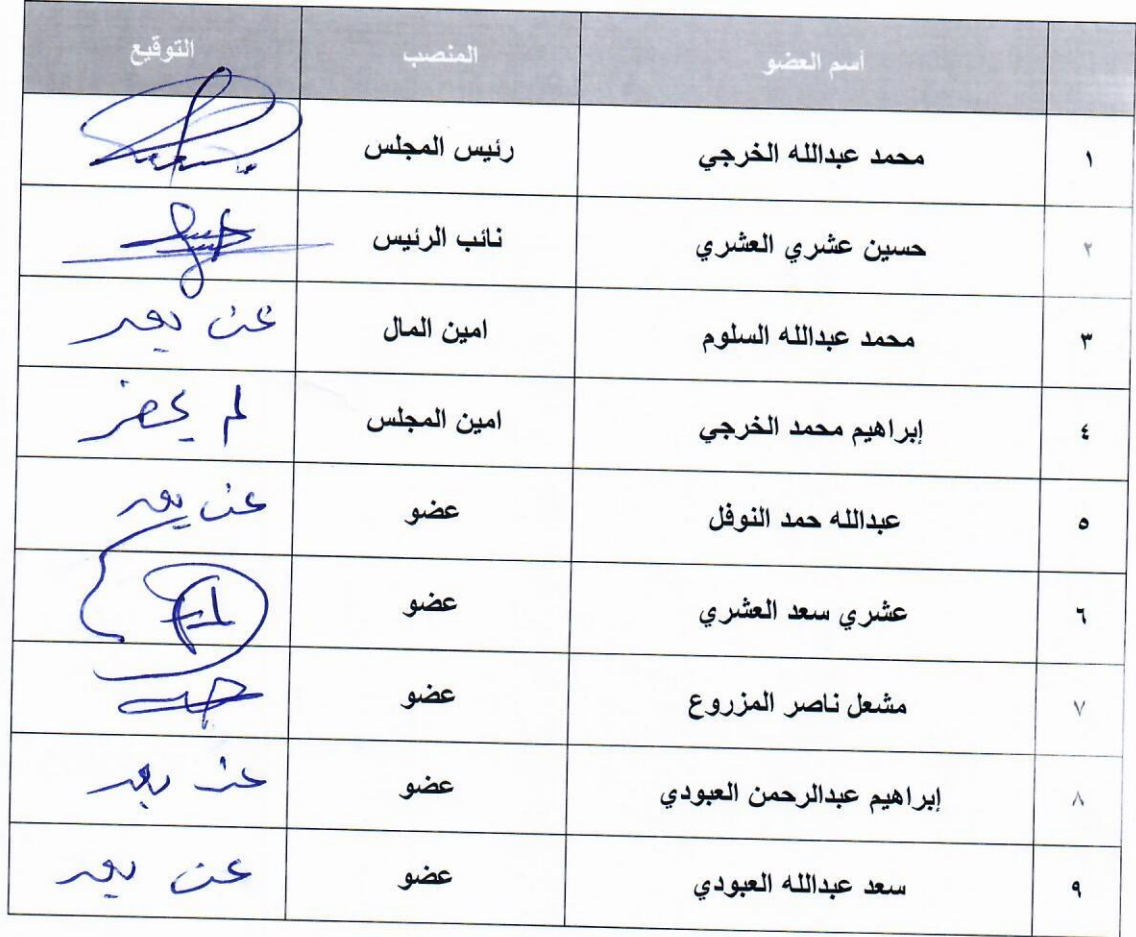 أسم العضو المنصب التوقيع
١ محمد عبدالله الخرجي رئيس المجلس
٢ حسين عشري العشري نائب الرئيس
٣ محمد عبدالله السلوم امين المال عن بعد
٤ إبراهيم محمد الخرجي امين المجلس لم يحضر
٥ عبدالله حمد النوفل عضو عن بعد
٦ عشري سعد العشري عضو
٧ مشعل ناصر المزروع عضو
٨ إبراهيم عبدالرحمن العبودي عضو عن بعد
٩ سعد عبدالله العبودي عضو عن بعد